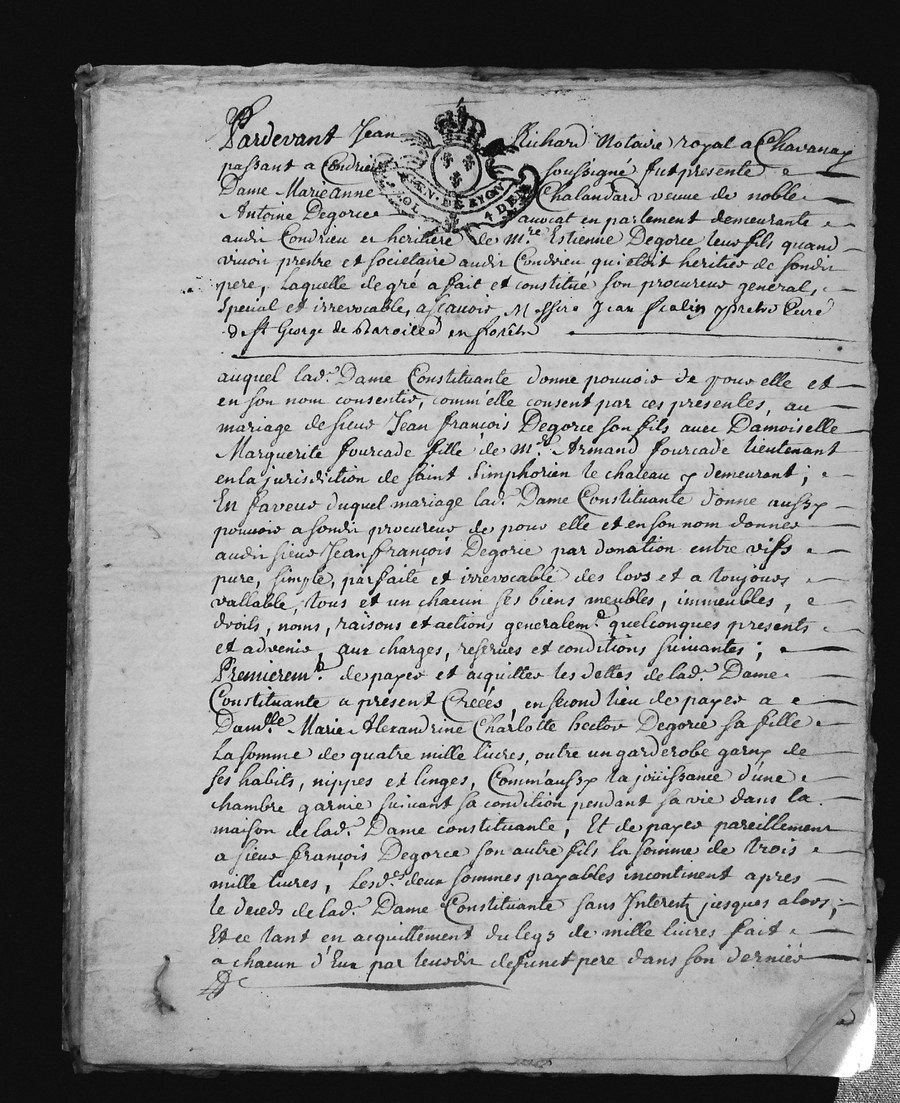 Pardevant Jean Richard Notaire royal a Chavanay
passant a Condrieu soussigné fut presente
Dame Marieanne Chalandard veuve de noble
Antoine Degorce avocat en parlement demeurante
GEN. DE LYON
SOL 4 DEN
audit Condrieu et heritiere de Mre Estienne Degorce leur fils quand
vivoit prestre et societaire audit Condrieu qui etoit heritier de sondit
pere, Laquelle de gré a fait et constitué son procureur general,
special et irrevocable, ascavoir Messire Jean pretre Curé
de St George de Baroille en forêts
auquel lad. Dame Constituante donne pouvoir de pour elle et
en son nom consentir, comm'elle consent par ces presentes, au
mariage de sieur Jean françois Degorce son fils avec Damoiselle
Marguerite fourcade fille de Mre Armand fourcade lieutenant
en la jurisdiction de saint Simphorien le chateau y demeurant;
En faveur duquel mariage lad. Dame Constituante donne aussy
pouvoir a sondit procureur de pour elle et en son nom donner
audit sieur Jean françois Degorce par donation entre vifs
pure, simple, parfaite et irrevocable des lors et a toujours
vallable, tous et un chacun ses biens meubles, immeubles,
droits, noms, raisons et actions generalemt. quelconques presents
et advenir, aux charges, reserves et conditions suivantes;
Premieremt. de payer et aquitter les dettes de lad. Dame
Constituante a present Creées, en second lieu de payer a
Damlle Marie Alexandrine Charlotte hector Degorce sa fille
La somme de quatre mille livres, outre un garderobe garny de
ses habits, nippes et linges, Comm'aussy la joüissance d'une
chambre garnie suivant sa condition pendant sa vie dans la
maison de lad. Dame constituante, Et de payer pareillement
a sieur françois Degorce son autre fils la somme de trois
mille livres, Lesd. deux sommes payables incontinent apres
le deceds de lad. Dame Constituante sans Interest jusques alors;
Et ce tant en acquittement du legs de mille livres fait
a chacun d'Eux par leurdit defunct pere dans son dernier